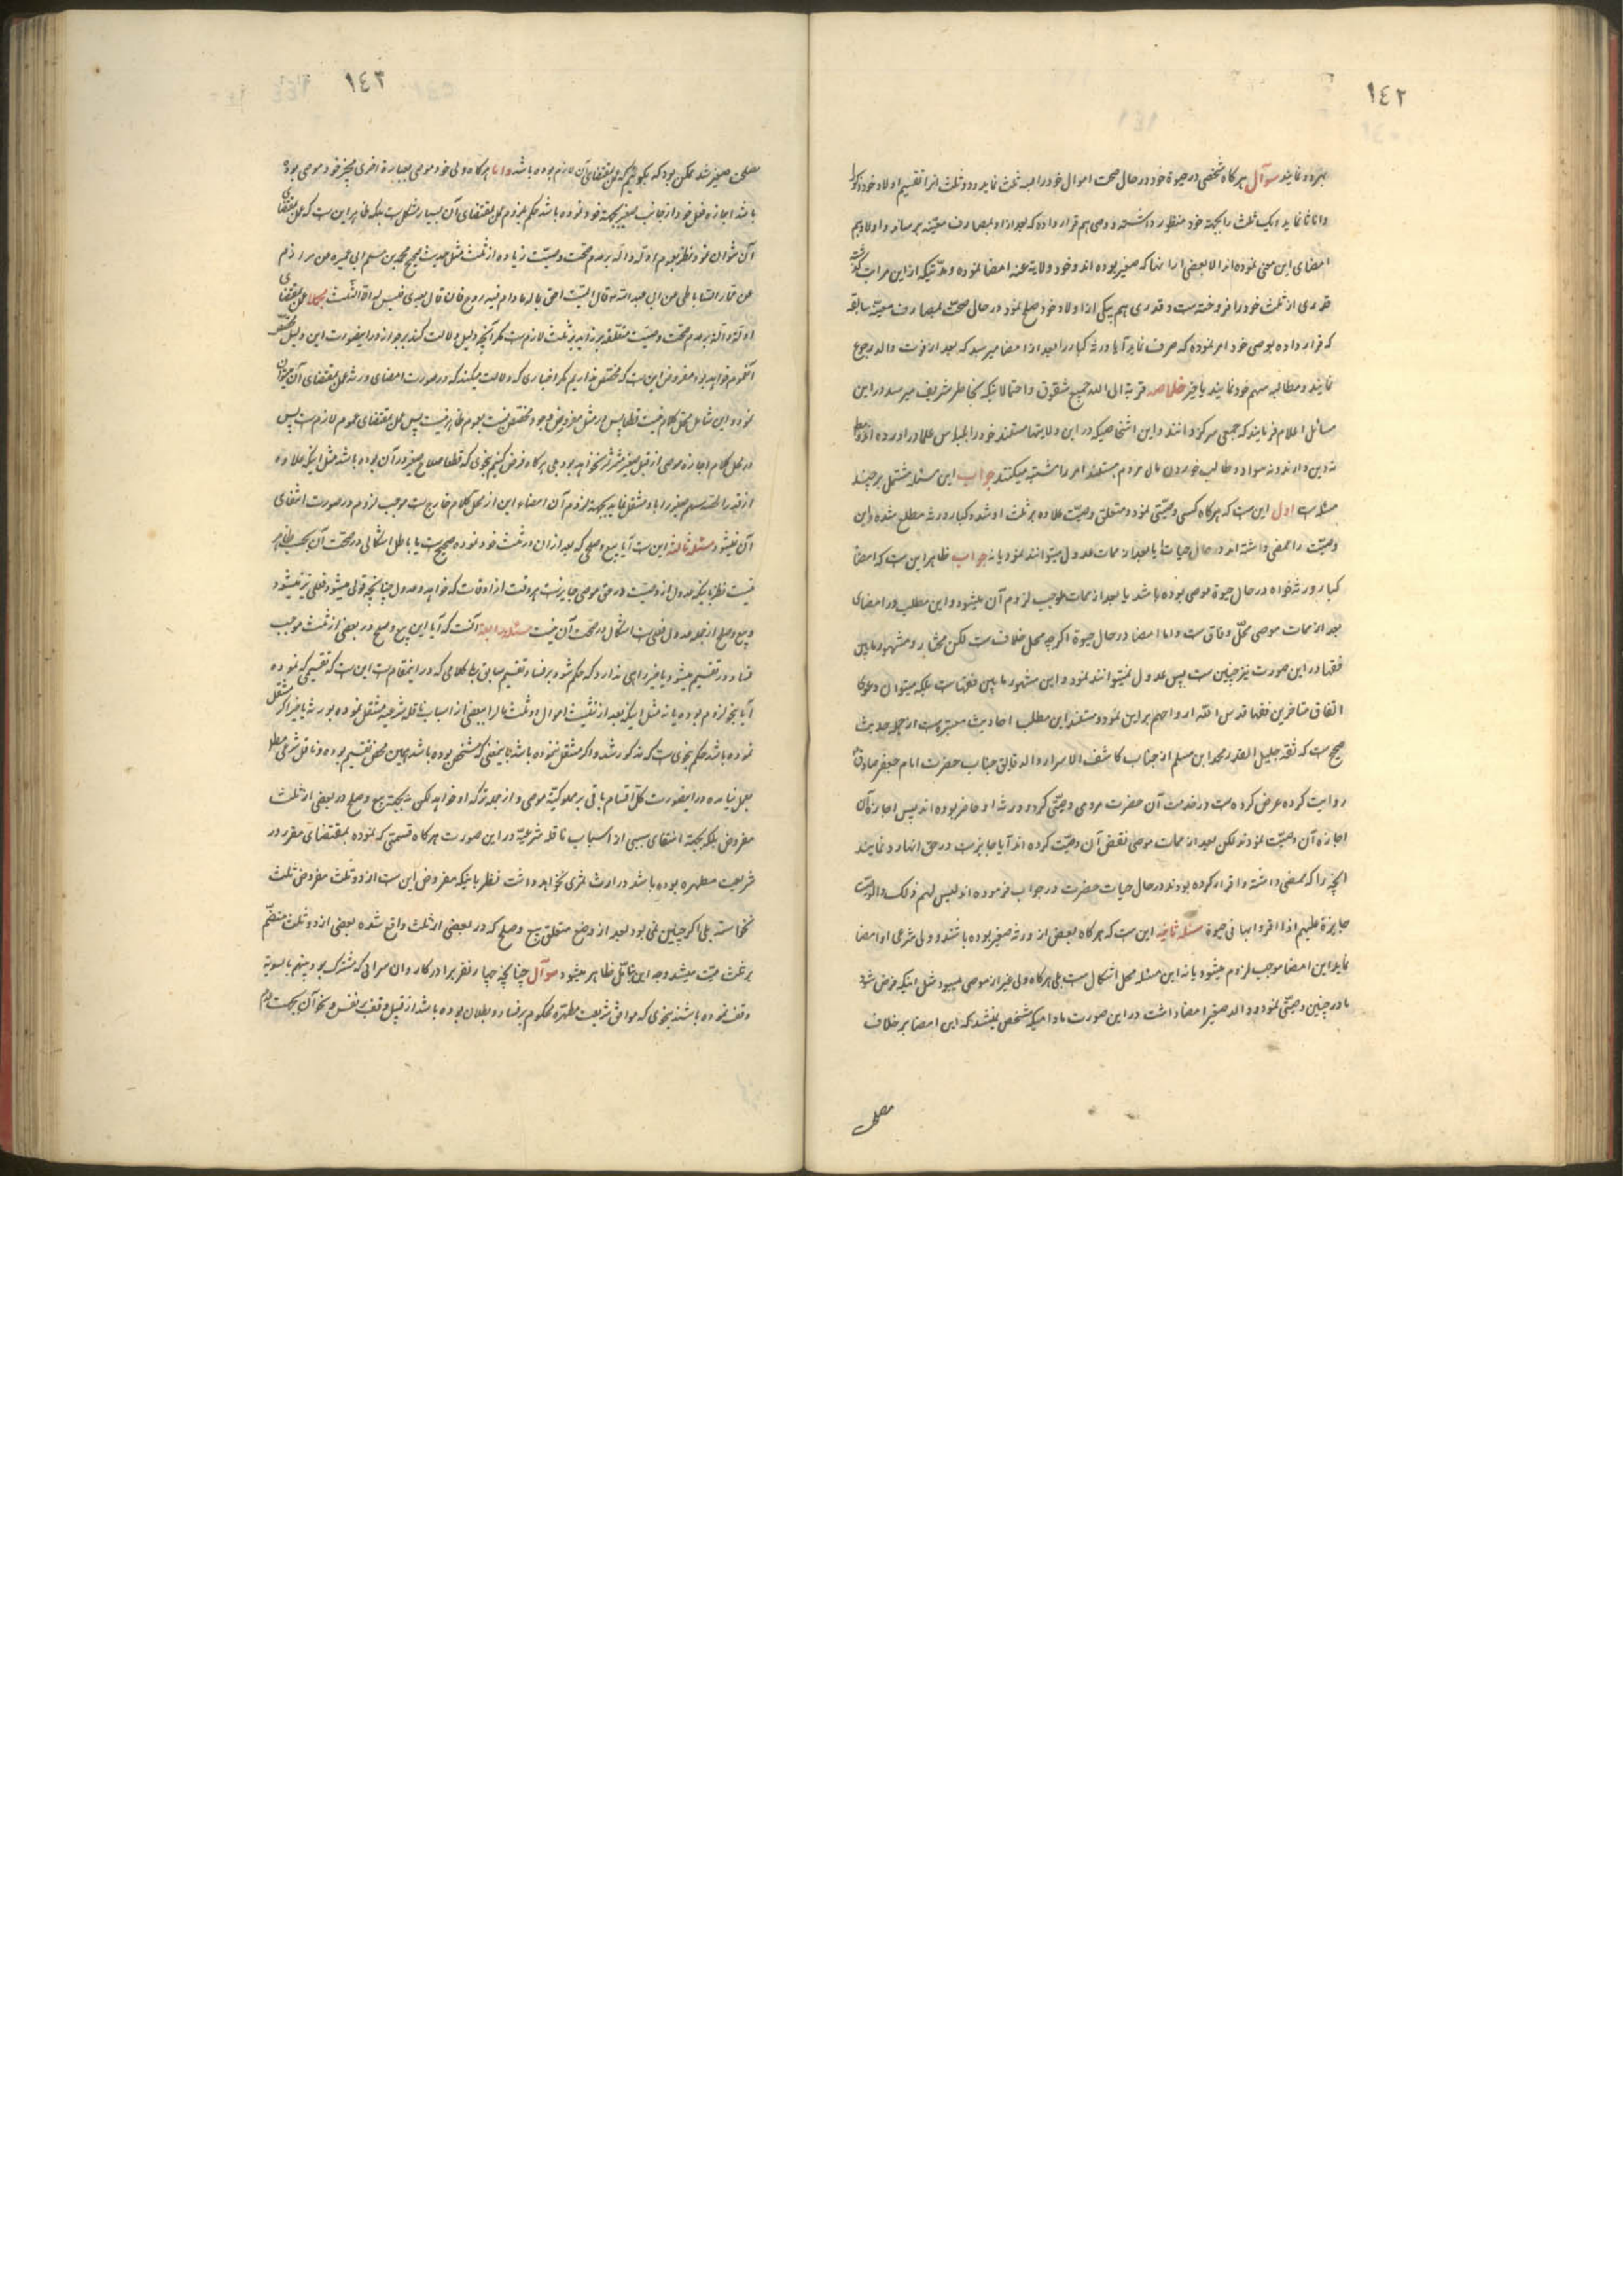 ١٤٢
بهره و نمایند سوآل هر کاه شخصی در حیوة خود در حال صحت اموال خود را سه ثلث نماید و دو ثلث انرا تقسیم اولاد خود ذکورا
و اناثا نماید و یک ثلث را بجهة خود منظور داشته و وصی هم قرار داده که بعد از او بمصارف معینه برساند و اولاد هم
امضای این معنی نموده اند الا بعضی از انها که صغیر بوده اند و خود ولایة عنه امضا نموده و مدتیکه از این مراتب گذشته
قدری از ثلث خود را فروخته است و قدری هم بیکی از اولاد خود صلح نمود در حال صحت بمصارف معینه سابقه
که قرار داده بوصی خود امر نموده که صرف نماید آیا ورثه کبار را بعد از امضا میرسد که بعد از فوت والد رجوع
نمایند و مطالبه سهم خود نمایند یا خیر خلاصه قربة الی الله جمیع شقوق و احتمالاتیکه بخاطر شریف میرسد در این
مسائل اعلام فرمایند که جمعی سرکردانند و این اشخاصیکه در این ولایتها مستند خود را بلباس علما در اورده اند و
نه دین دارند و نه سواد و طالب خوردن مال مردم هستند امر را مشتبه میکنند جواب این مسئله مشتمل بر چند
مسئله است اول این است که هر کاه کسی وصیتی نمود و متعلق وصیت علاوه بر ثلث او شد و کبار ورثه مطلع شده و این
وصیت را ممضی داشته اند در حال حیات یا بعد از ممات عدول میتوانند نمود یا نه جواب ظاهر این است که امضا
کبار ورثه خواه در حال حیوة موصی بوده باشد یا بعد از ممات موجب لزوم آن میشود و این مطلب در امضای
بعد از ممات موصی محل وفاق است و اما امضا در حال حیوة اکرچه محل خلاف است لکن مختار و مشهور ما بین
فقها در این صورت نیز چنین است پس عدول نمیتوانند نمود و این مشهور ما بین فقهاست بلکه میتوان دعوی
اتفاق متاخرین فقها قدس الله ارواحهم بر این نمود و مستند این مطلب احادیث معتبره است از جمله حدیث
صحیح است که ثقه جلیل القدر محمد ابن مسلم از جناب کاشف الاسرار و الدقایق جناب حضرت امام جعفر صادق
روایت کرده عرض کرده است در خدمت آن حضرت مردی وصیتی کرد و ورثه او حاضر بوده اند پس اجازه آن
اجازه آن وصیت نمودند لکن بعد از ممات موصی نقض آن وصیت کرده اند آیا جایز است در حق انها رد نمایند
انچه را که ممضی داشته و اقرار کرده بودند در حال حیات حضرت در جواب فرموده اند لیس لهم ذلک و الوصیة
جایزة علیهم اذا اقروا بها فی حیوة مسئله ثانیه این است که هر کاه بعض از ورثه صغیر بوده باشند و ولی شرعی او امضا
نماید این امضا موجب لزوم میشود یا نه این مسئله محل اشکال است بلی هر کاه ولی غیر از موصی میبود مثل اینکه فرض شود
مادر چنین وصیتی نمود و والد صغیر امضا داشت در این صورت مادامیکه مشخص نباشد که این امضا بر خلاف
مصلحت
١٤٣
مصلحت صغیر شد ممکن بود که بکوئیم که عمل بمقتضای آن لازم بوده باشد و اما هر کاه ولی خود موصی بعبارة اخری مجیز خود موصی بوده
باشد اجازه قبل خود از جانب صغیر بجهة خود نموده باشد حکم بلزوم عمل بمقتضای آن بسیار مشکل است بلکه ظاهر این است که عمل بمقتضای
آن نتوان نمود نظر بعموم ادله داله بر عدم صحت وصیت زیاده از ثلث مثل حدیث صحیح محمد بن مسلم ابی عمیر عن مرازم
عن عمار الساباطی عن ابی عبد الله قال المیت احق بماله مادام فیه روح فان قال بعدی فلیس له الا الثلث مجملا عمل بمقتضای
ادله داله بر عدم صحت وصیت متعلقه بزاید بر ثلث لازم است مکر آنچه دلیل دلالت کند بر جواز در اینصورت این دلیل مخصص
آنعموم خواهد بود مفروض این است که مخصص نداریم مکر اخباری که دلالت میکنند که در صورت امضای ورثه عمل بمقتضای آن میتوان
نمود و این شامل محل کلام نیست قطعا پس در مثل مفروض وجود مخصص نیست عموم ظاهر نیست پس عمل بمقتضای عموم لازم است پس
در محل کلام اجازه موصی از قبل صغیر مثمر ثمر نخواهد بود بلی هر کاه فرض کنیم بنحوی که قطعا صلاح صغیر در آن بوده باشد مثل اینکه علاوه
از قدر الحصه سهم صغیر را باو منتقل نماید بجهة لزوم آن امضاء این از محل کلام خارج است موجب لزوم در صورت انتفای
آن نمیشود مسئله ثالثه این است آیا بیع و صلحی که بعد از ان در ثلث خود نموده صحیح است یا باطل اشکالی در صحت آن بحسب ظاهر
نیست نظر باینکه عدول از وصیت در حق موصی جایز است هر وقت از اوقات که خواهد و عدول چنانچه قولی میشود فعلی نیز میشود
و بیع و صلح از جمله عدول فعلی است اشکال در صحت آن نیست مسئله رابعه آنست که آیا این بیع و صلح در بعضی از ثلث موجب
فساد در تقسیم میشود یا خیر راهی ندارد که حکم شود بر فساد تقسیم سابق بلی کلامی که در اینمقام است این است که تقسیمی که نموده
آیا بنحو لزوم بوده یا نه مثل اینکه بعد از تثلیث اموال دو ثلث مال را ببعضی از اسباب ناقله شرعیه منتقل نموده بورثه یا خیر اکر منتقل
نموده باشد حکم بنحوی است که مذکور شد و اکر منتقل ننموده باشد باینمعنی که مشخص بوده باشد همین محض تقسیم بوده و ناقل شرعی مطلقا
بعمل نیامده در اینصورت کل اقسام باقی بر مملوکیة موصی و از جمله ترکه او خواهد لکن نه بجهة بیع و صلح در بعضی از ثلث
مفروض بلکه بجهة انتفای سببی از اسباب ناقله شرعیه در این صورت هر کاه قسمتی که نموده بمقتضای مقرر در
شریعت مطهره بوده باشد در ارث ثمری نخواهد داشت نظر باینکه مفروض این است از دو ثلث مفروض ثلث
نخواسته بلی اکر چنین نمی بود بعد از وضع متعلق بیع و صلح که در بعضی از ثلث واقع شده بعضی از دو ثلث منضم
بر ثلث میت میشد وجه این بتأمل ظاهر میشود سوآل چنانچه چهار نفر برادر کاروان سرائی که مشترک بود بینهم بالسویة
وقف نموده باشند بنحوی که موافق شریعت مطهره محکوم بر فساد و بطلان بوده باشد از قبیل وقف بر نفس و نحو آن بجهت